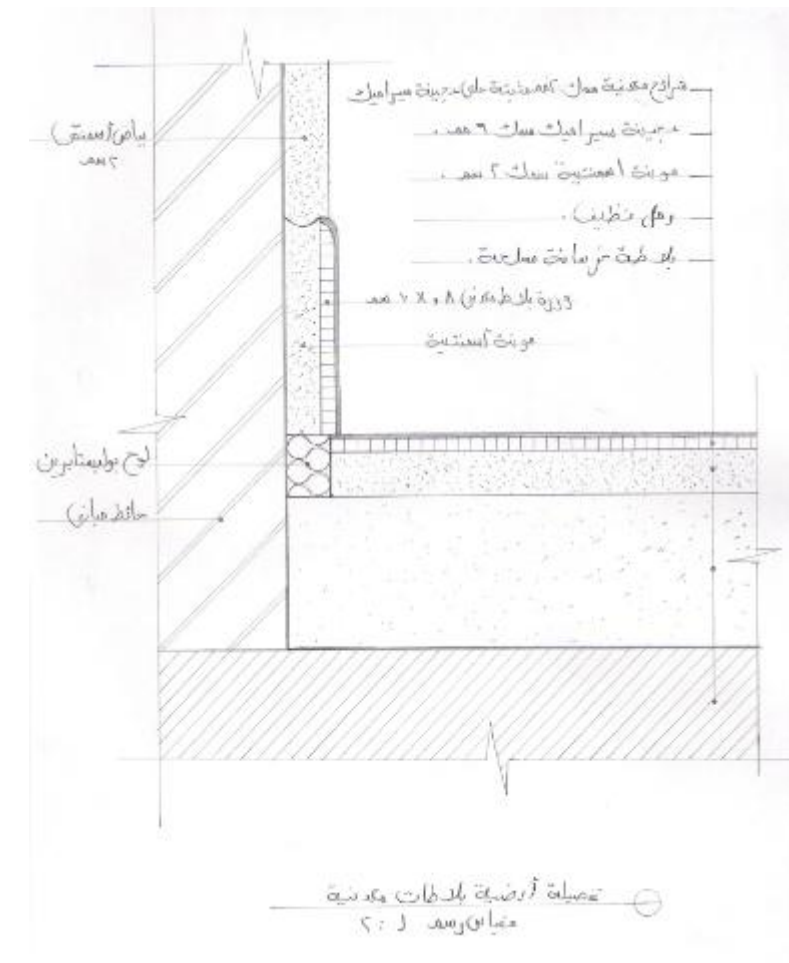 شرائح معدنية سمك تلصق بعجينة سيراميك
عجينة سيراميك سمك ٦ مم .
مونة أسمنتية سمك ٢ سم .
رمل نظيف .
بلاطة خرسانة مسلحة .
وزرة بلاط معدني ٨ و X ٧ سم
مونة أسمنتية
بياض أسمنتى
٢ سم
لوح بوليستايرين
حائط مبانى
تفصيلة أرضية بلاطات معدنية
مقياس رسم ١ : ٢